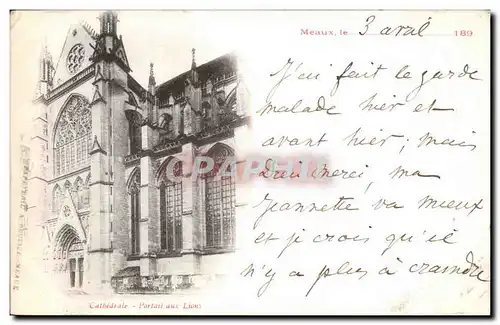 Meaux, le 3 avril 189
J'ai fait le garde
malade hier et
avant hier; mais
Dieu merci, ma
Jeannette va mieux
et je crois qu'il
n'y a plus à craindre
CPARAMA
Cathédrale - Portail aux Lions